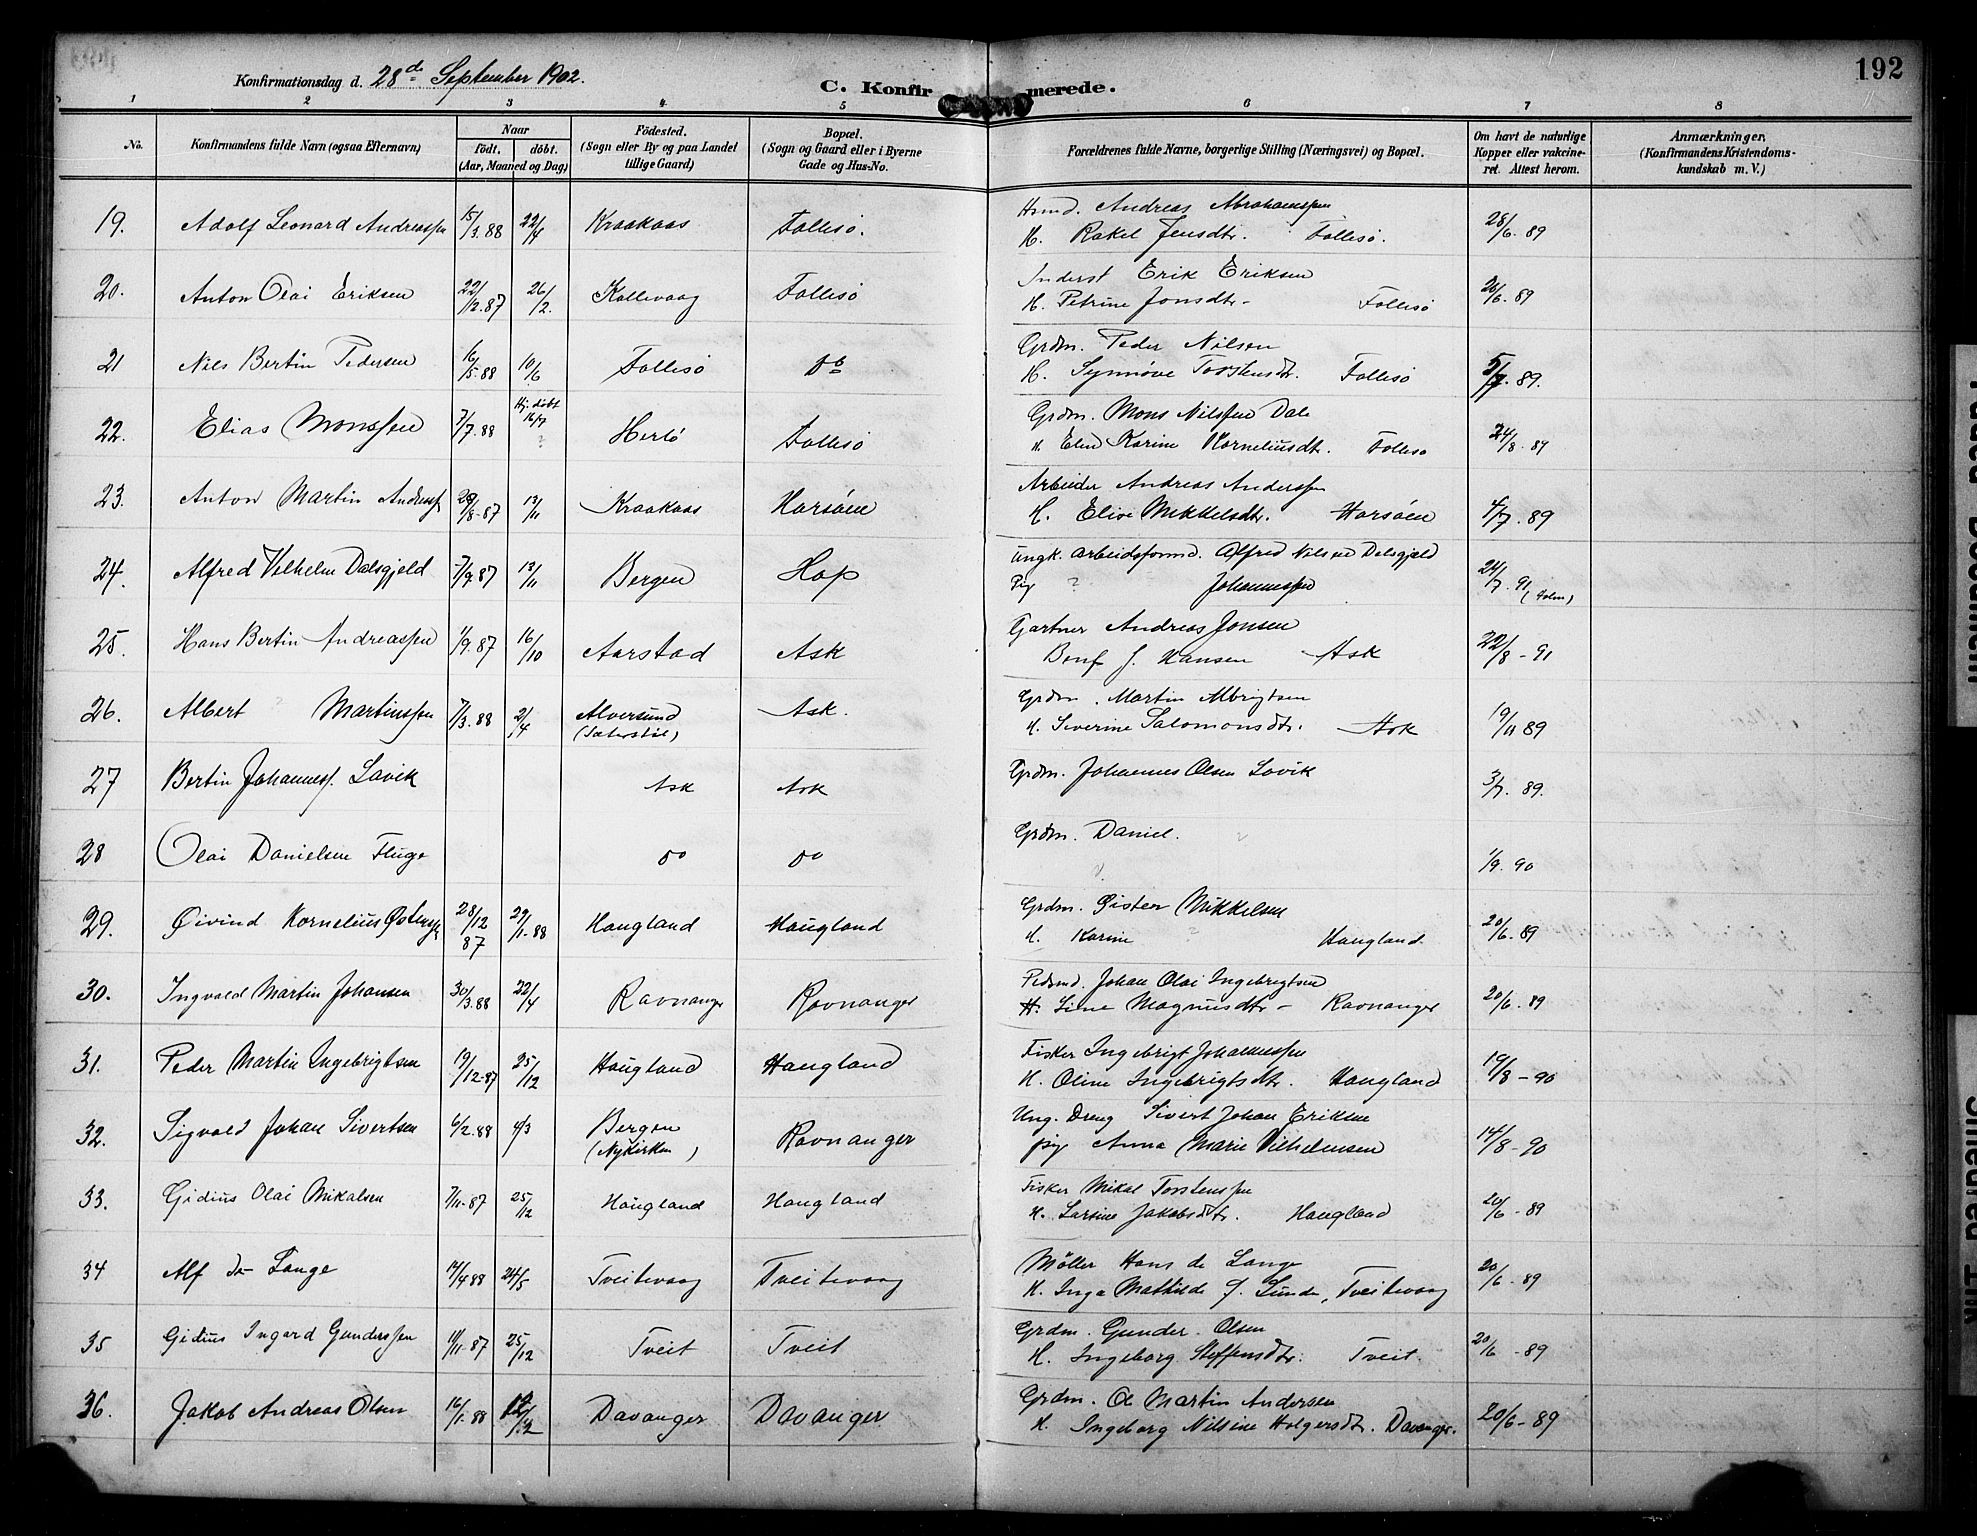 192
Konfirmationsdag d. 28de September 1902.
C. Konfirmerede.
1 2 3 4 5 6 7 8
No. Konfirmandens fulde Navn (ogsaa Efternavn) Naar födt. döbt. (Aar, Maaned og Dag) Födested. (Sogn eller By og paa Landet tillige Gaard) Bopæl. (Sogn og Gaard eller i Byerne Gade og Hus-No. Forældrenes fulde Navne, borgerlige Stilling (Næringsvei) og Bopæl. Om havt de naturlige Kopper eller vakcineret. Attest herom. Anmærkninger. (Konfirmandens Kristendomskundskab m. V.)
19. Adolf Leonard Andreassen 15/3.88 22/4 Kraakaas Follesö. Hsmd. Andreas Abrahamssen 28/6.89
H. Rakel Jensdtr. Follesö.
20. Anton Olai Eriksen 22/12.87 26/2. Kollevaag Follesö Inderst Erik Eriksen 20/6.89
H. Petrine Jonsdtr. Follesö
21 Nils Bertin Pedersen 16/5.88 10/6 Follesö do Grdm. Peder Nilsen 5/7.89.
H. Synnöve Torstensdtr. Follesö
22. Elias Monssen 7/7.88 Hj. döbt 16/7 ? Herlö Follesö Grdm. Mons Nilssen Dale 24/8.89
H. Elen Karine Korneliusdtr. Follesö
23. Anton Martin Anderss. 28/8.87 13/11 Kraakaas Horsöen Arbeider Andreas Anderssen 4/7.89
H. Elise Mikkelsdtr. Horsöen
24. Alfred Vilhelm Dalsgjeld 7/9.87 13/11 Bergen Hop Ungk. Arbeidsformd. Alfred Nilsen Dalsgjeld 24/7.91
Pig ? Johannessen
25. Hans Bertin Andreassen 1/9.87 16/10 Aarstad Ask Gartner Andreas Jonsen 22/8-91
J. Hansen Ask
26. Albert ? Martinssen 7/3.88 2/4 Alversund (Sæterstöl) Ask. Grdm. Martin Albrigtsen 19/11 89
H. Severine Salomonsdtr. Ask
27 Bertin Johanness. Lavik Ask Ask Grdm. Johannes Olsen Lavik 3/7.89.
28 Olai Danielsen Fluge do do Grdm. Daniel. ? 1/9.90
?
29. Öivind Kornelius Östenss. 28/12 87 29/1.88 Haugland Haugland Grdm. Östen Mikkelsen 20/6.89
H. Karine ? Haugland.
30. Ingvald Martin Johansen 30/3.88 22/4 Ravnanger Ravnanger Pldsmd. Johan Olai Ingebrigtsen 20/6.89
H. Sine Magnusdtr - Ravnanger
31. Peder Martin Ingebrigtsen 19/12.87 25/12 Haugland Haugland Fisker Ingebrigt Johannessen 19/8-90
H. Oline Ingebrigtsdtr. Haugland
32. Sigvald Johan Sivertsen 6/2.88 4/3 Bergen (Nykirken) Ravnanger Ung. Dreng Sivert Johan Eriksen 14/8-90
pig Anna Marie Vilhelmsen
33. Gidius Olai Mikalsen 7/11.87 25/12 Haugland Haugland Fisker Mikal Torstenssen 20/6-89
H. Sartine Jakobsdtr. Haugland
34 Alf de Lange 14/4 88 24/5 Tveitevaag Tveitevaag Möller Hans de Lange 20/6-89
H. Inga Mathilde f. Lunde, Tveitevaag
35 Gidius Ingard Gunderssen 11/11.87 25/12 Tveit Tveit Grdm. Gunder Olsen 20/6-89
H. Ingeborg Steffensdtr. Tveit.
36. Jakob Andreas Olsen 16/1.88 Davanger Davanger Grdm. Ol Martin Andersen 20/6-89
H. Ingeborg Nilsine Holgersdtr. Davanger.